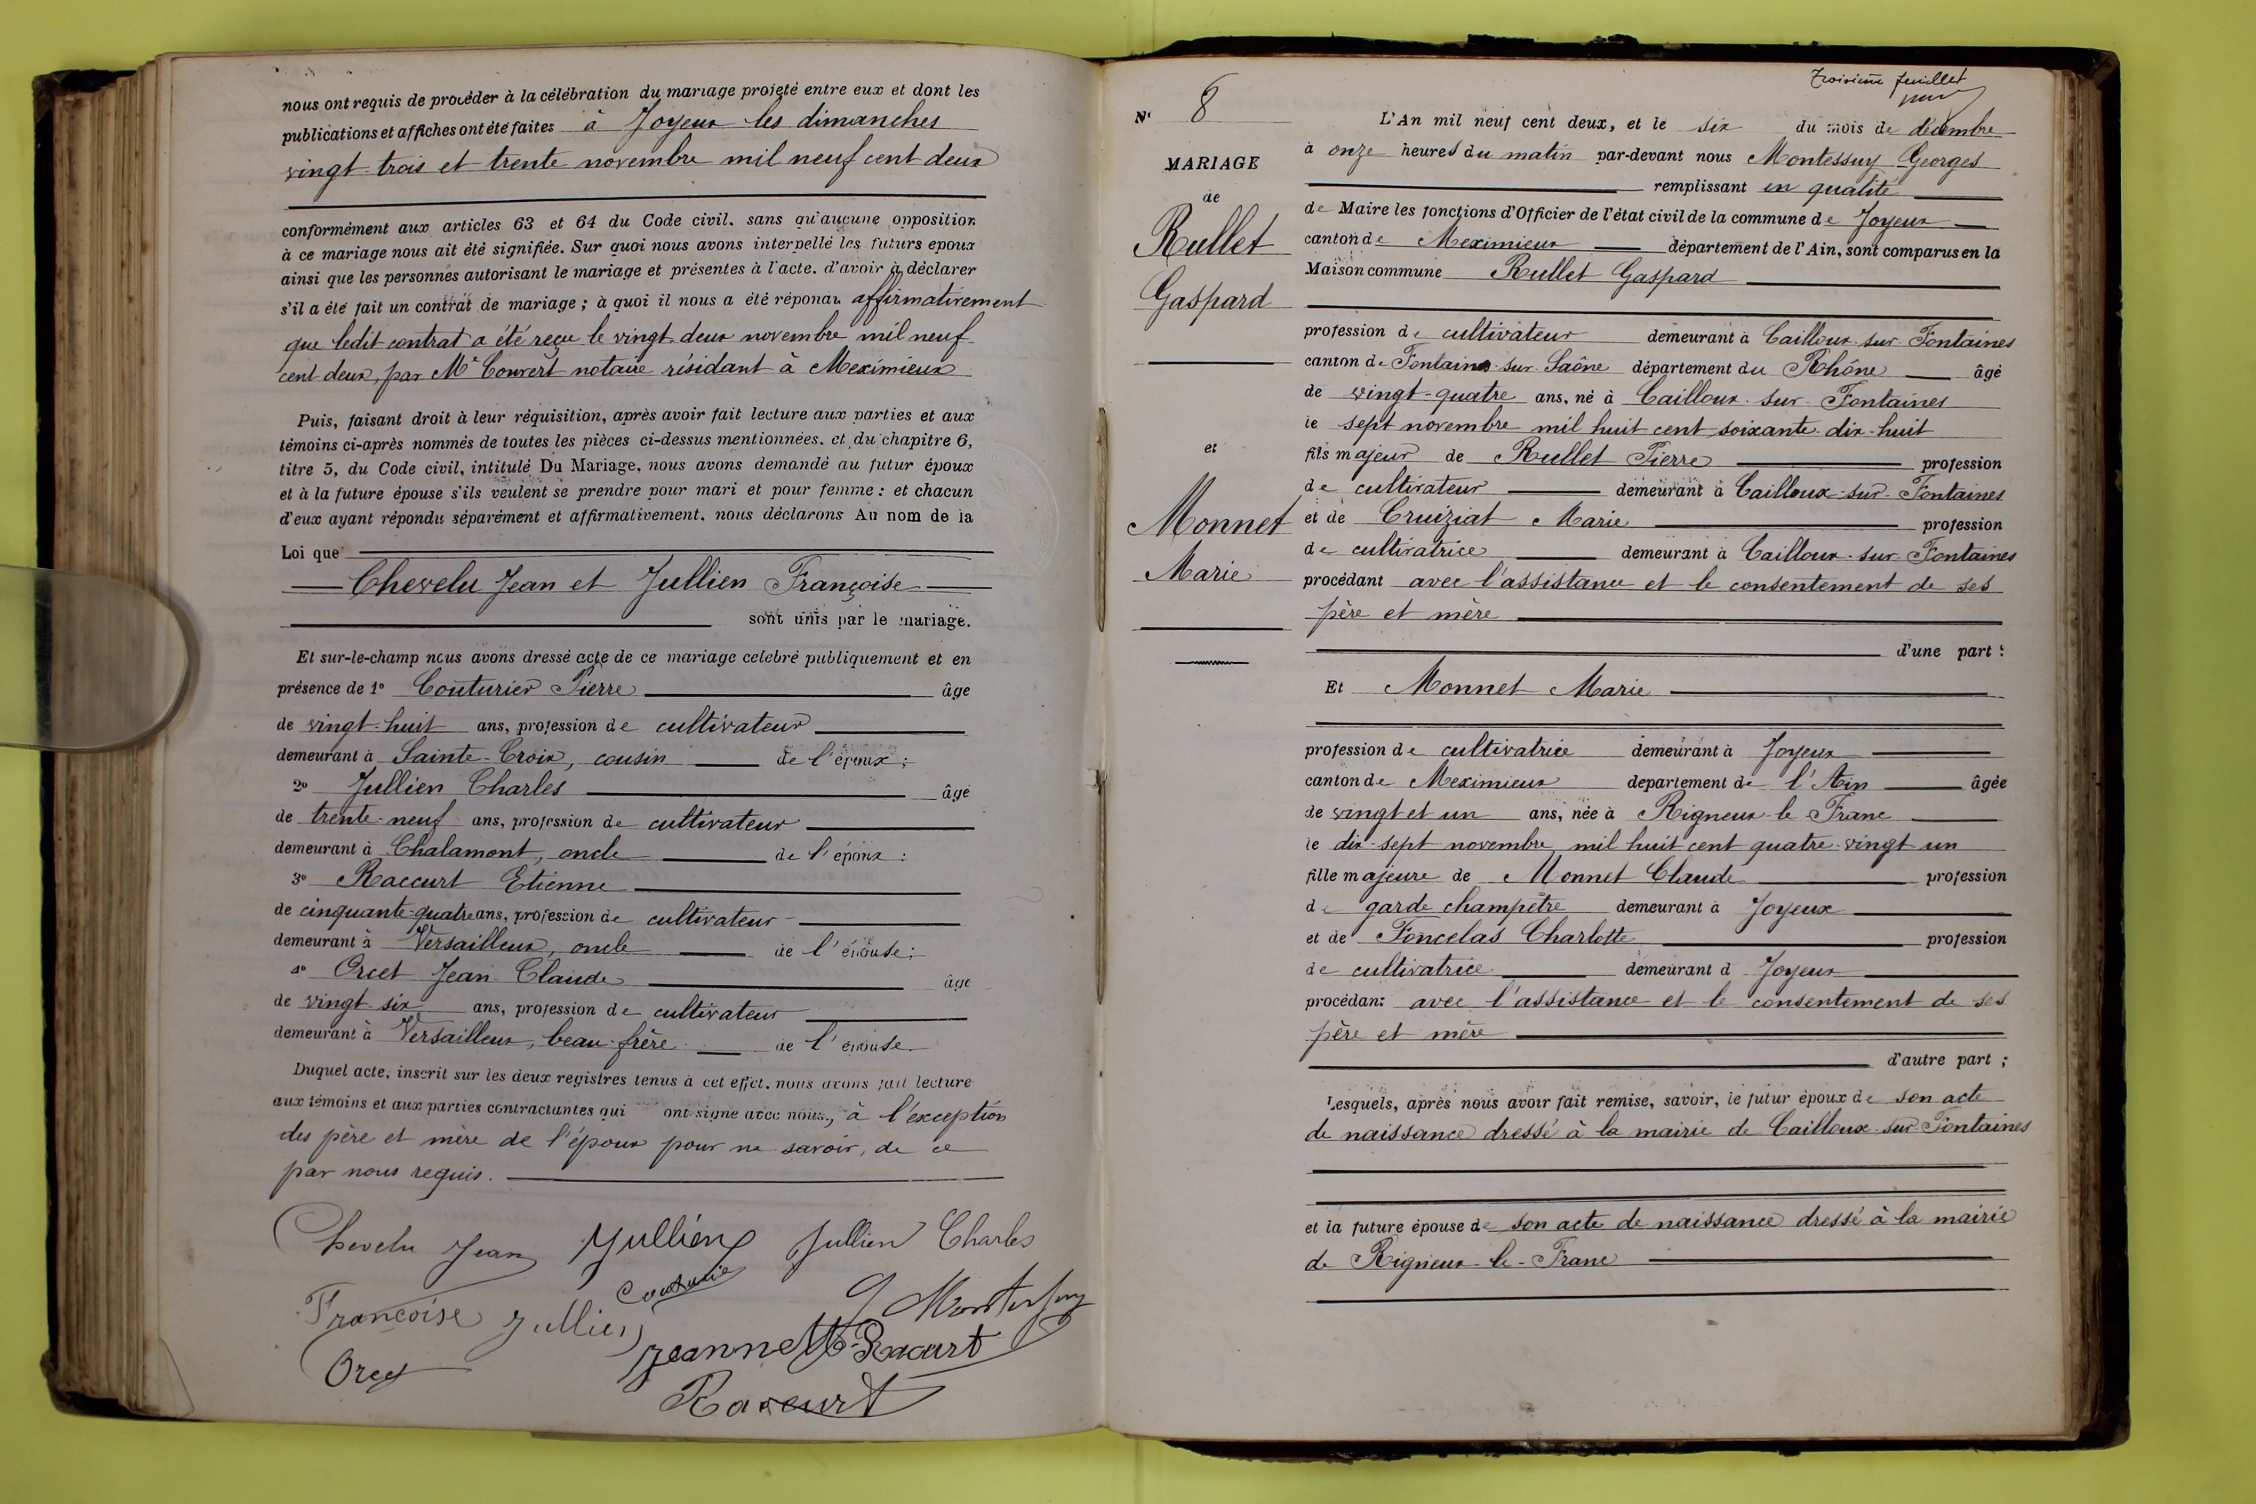 nous ont requis de procéder à la célébration du mariage projeté entre eux et dont les
publications et affiches ont été faites à Joyeux les dimanches
vingt-trois et trente novembre mil neuf cent deux
conformément aux articles 63 et 64 du Code civil, sans qu'aucune opposition
à ce mariage nous ait été signifiée. Sur quoi nous avons interpellé les futurs epoux
ainsi que les personnes autorisant le mariage et présentes à l'acte, d'avoir à déclarer
s'il a été fait un contrat de mariage ; à quoi il nous a été répondu affirmativement
que ledit contrat a été reçu le vingt deux novembre mil neuf
cent deux, par Me Convert notaire résidant à Meximieux
Puis, faisant droit à leur réquisition, après avoir fait lecture aux parties et aux
témoins ci-après nommés de toutes les pièces ci-dessus mentionnées, et du chapitre 6,
titre 5, du Code civil, intitulé Du Mariage, nous avons demandé au futur époux
et à la future épouse s'ils veulent se prendre pour mari et pour femme : et chacun
d'eux ayant répondu séparément et affirmativement, nous déclarons Au nom de la
Loi que
Chevelu Jean et Jullien Françoise
sont unis par le mariage.
Et sur-le-champ nous avons dressé acte de ce mariage celebré publiquement et en
présence de 1° Couturier Pierre âge
de vingt-huit ans, profession de cultivateur
demeurant à Sainte-Croix, cousin de l'époux ;
2° Jullien Charles âgé
de trente-neuf ans, profession de cultivateur
demeurant à Chalamont, oncle de l'époux :
3° Raccurt Etienne
de cinquante-quatre ans, profession de cultivateur
demeurant à Versailleux, oncle de l'épouse ;
4° Orcet Jean Claude âge
de vingt-six ans, profession de cultivateur
demeurant à Versailleux, beau-frère de l'épouse
Duquel acte, inscrit sur les deux registres tenus à cet effet, nous avons fait lecture
aux témoins et aux parties contractantes qui ont signé avec nous, à l'exception
des père et mère de l'époux pour ne savoir, de ce
par nous requis.
Chevelu Jean Jullien Jullien Charles
Couturie
Françoise Jullien G Montessuy
Jeannette Racurt
Orcet
Raccurt
Troisième feuillet
N° 8
MARIAGE
de
Rullet
Gaspard
et
Monnet
Marie
L'An mil neuf cent deux, et le six du mois de décembre
à onze heures du matin par-devant nous Montessuy Georges
remplissant en qualité
de Maire les fonctions d'Officier de l'état civil de la commune de Joyeux
canton de Meximieux département de l'Ain, sont comparus en la
Maison commune Rullet Gaspard
profession de cultivateur demeurant à Cailloux-sur-Fontaines
canton de Fontaines-sur-Saône département du Rhône âgé
de vingt-quatre ans, né à Cailloux-sur-Fontaines
le sept novembre mil huit cent soixante-dix-huit
fils majeur de Rullet Pierre profession
de cultivateur demeurant à Cailloux-sur-Fontaines
et de Cruiziat Marie profession
de cultivatrice demeurant à Cailloux-sur-Fontaines
procédant avec l'assistance et le consentement de ses
père et mère
d'une part :
Et Monnet Marie
profession de cultivatrice demeurant à Joyeux
canton de Meximieux département de l'Ain âgée
de vingt et un ans, née à Rigneux-le-Franc
le dix-sept novembre mil huit cent quatre-vingt un
fille majeure de Monnet Claude profession
de garde champêtre demeurant à Joyeux
et de Foncelas Charlotte profession
de cultivatrice demeurant à Joyeux
procédant avec l'assistance et le consentement de ses
père et mère
d'autre part ;
Lesquels, après nous avoir fait remise, savoir, le futur époux de son acte
de naissance dressé à la mairie de Cailloux-sur-Fontaines
et la future épouse de son acte de naissance dressé à la mairie
de Rigneux-le-Franc